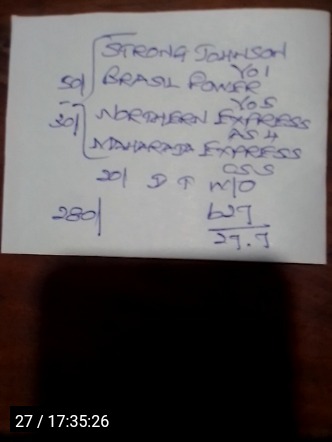 STRONG JOHNSON
YO1
50/ BRASIL POWER
YOS
30/ NORTHERN EXPRESS
AS4
MAHARAJA EXPRESS
CSS
20/ D T W/O
280/ 627
27.7
27 / 17:35:26